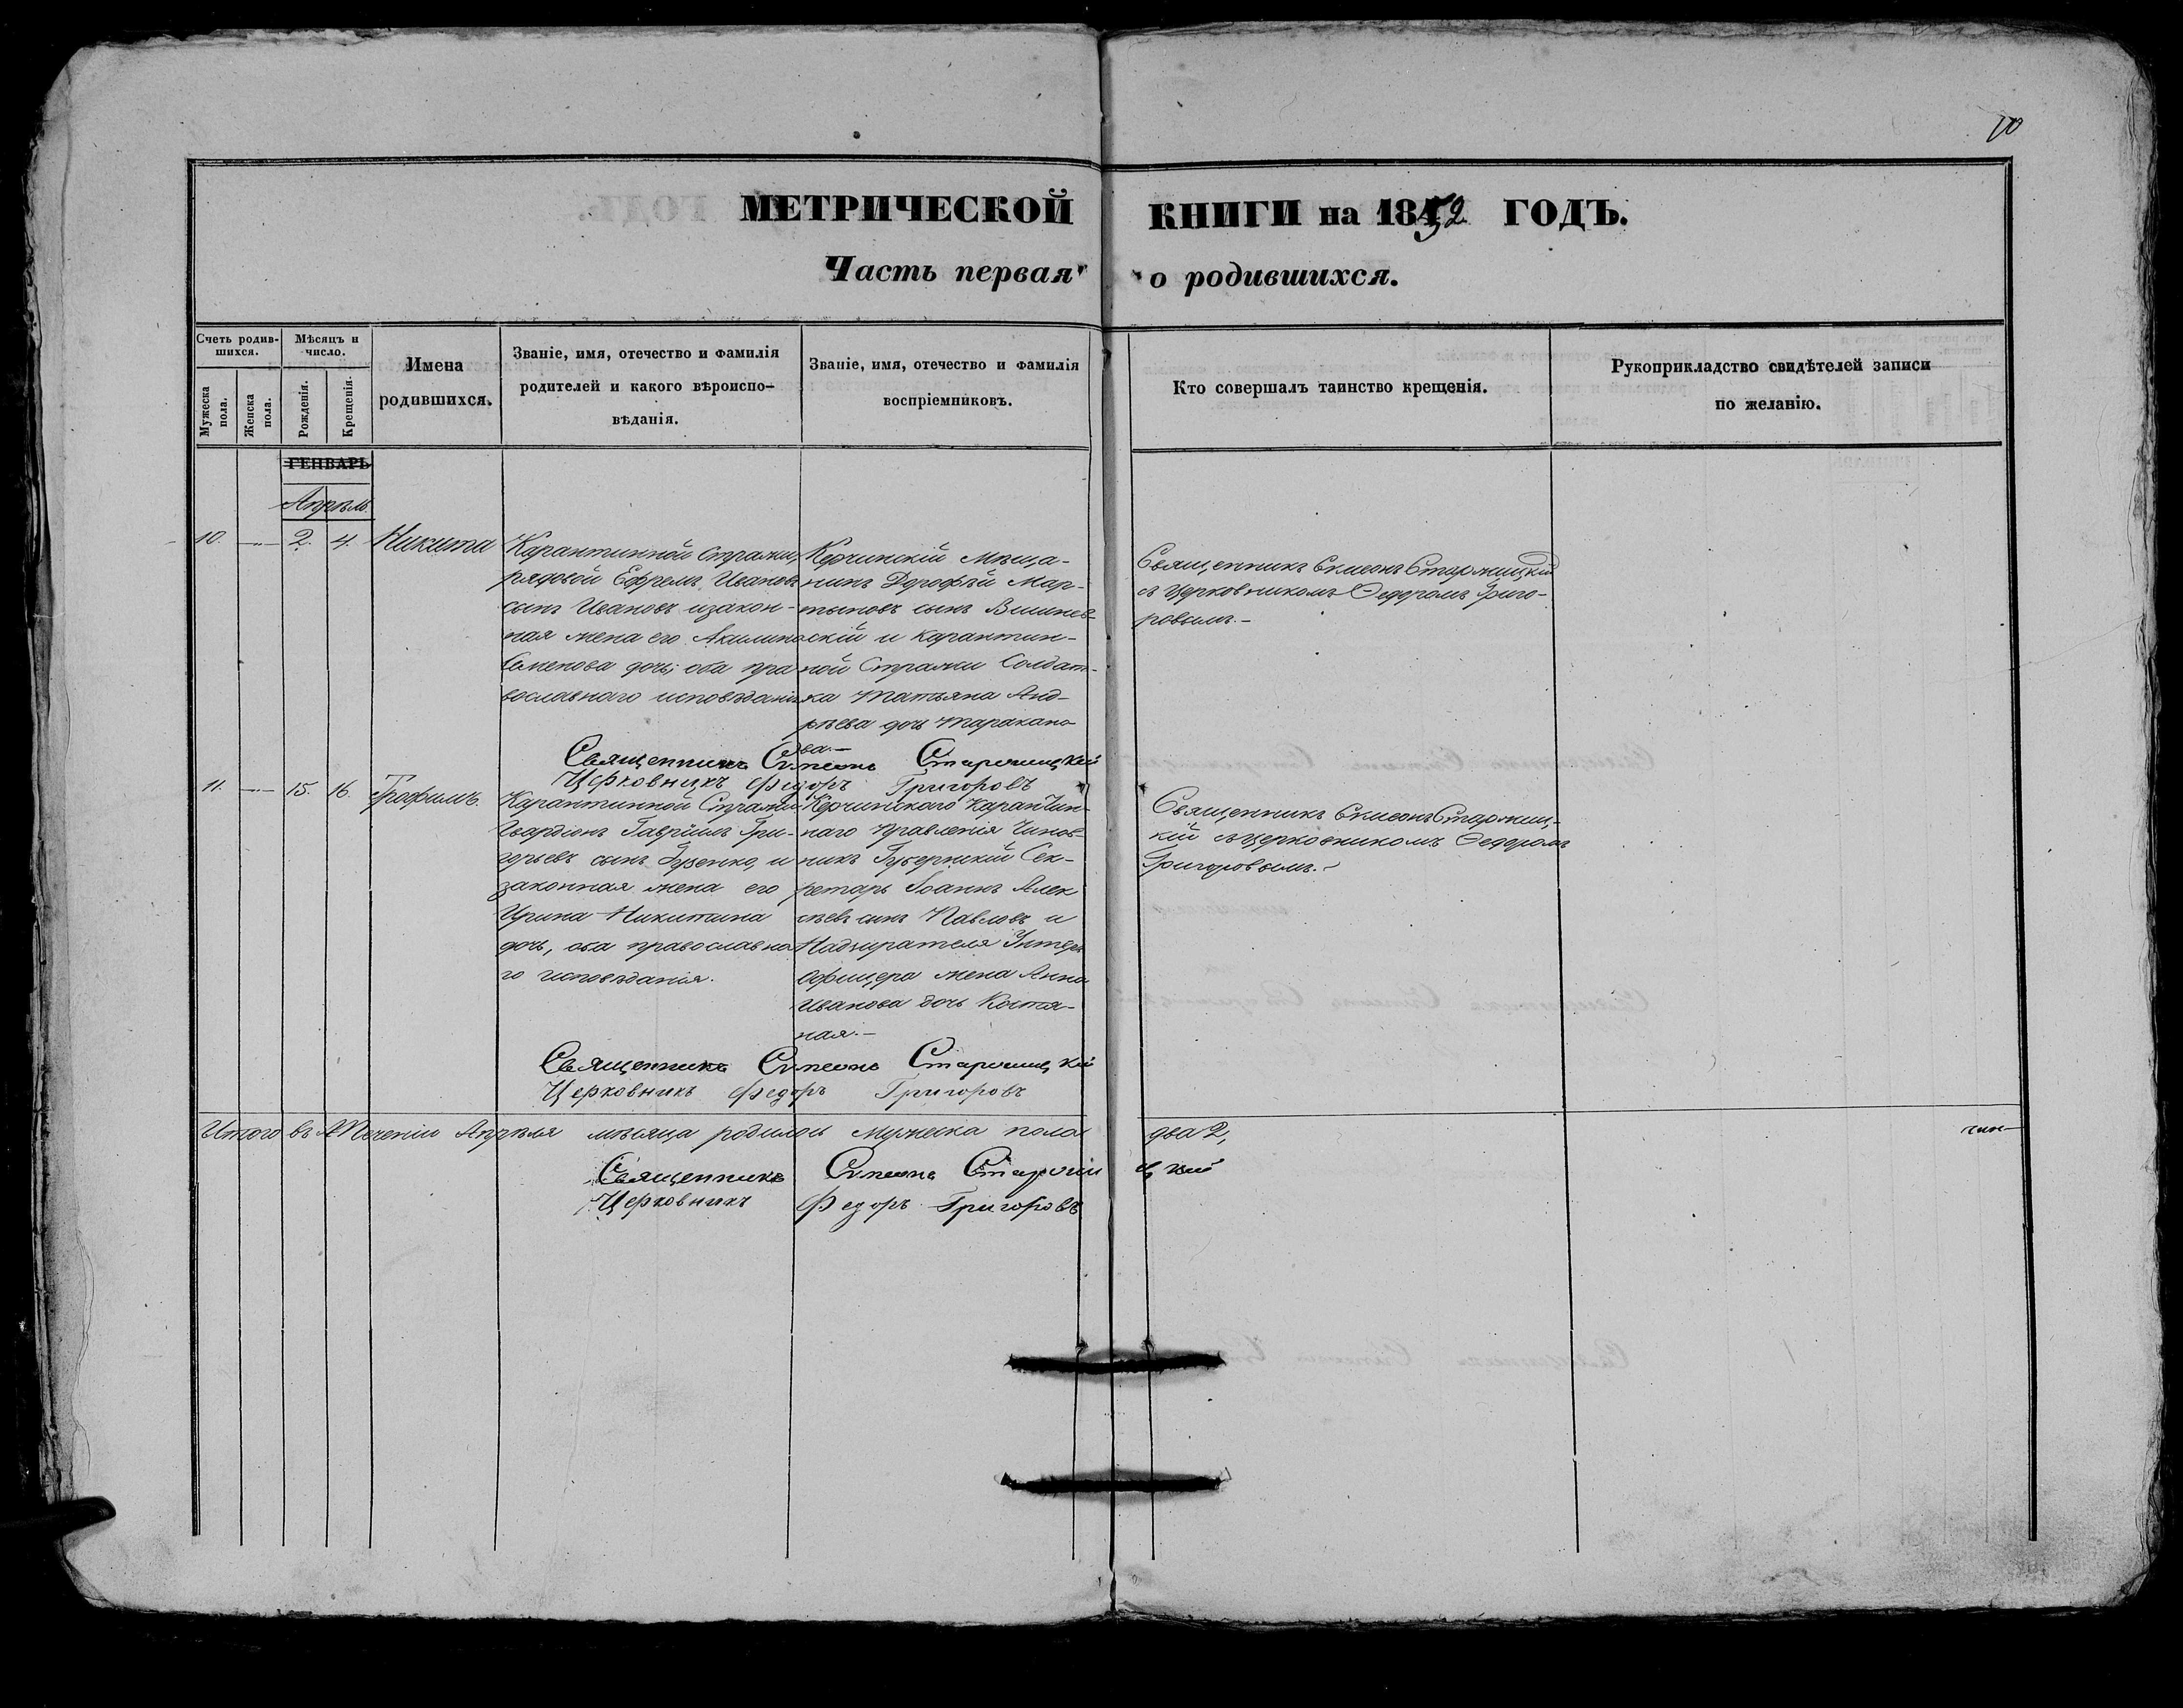 10
МЕТРИЧЕСКОЙ КНИГИ на 1852 ГОДЪ.
Часть первая о родившихся.
Счетъ родив-
шихся.
Мужеска
пола.
Женска
пола.
Мѣсяцъ и
число.
Рожденія.
Крещенія.
Имена
родившихся.
Званіе, имя, отечество и фамилія
родителей и какого вѣроиспо-
вѣданія.
Званіе, имя, отечество и фамилія
воспріемниковъ.
Кто совершалъ таинство крещенія.
Рукоприкладство свидѣтелей записи
по желанію.
ГЕНВАРЬ
Апрѣль
10. — 2. 4. Никита
Карантинной Стражи,
рядовой Ефремъ Ивановъ
сынъ Ивановъ изакон-
ная жена его Акилина
Семенова дочь; оба пра
вославнаго исповѣданія
Керчинскій Мѣща-
нинъ Дорофѣй Мар-
тыновъ сынъ Вишнев-
скій и карантин-
ной Стражи Солдат-
ка Татьяна Анд-
рѣева дочь Таракано
ва.—
Священникъ Симеонъ Старжицкій
съ Церковникомъ Федоромъ Григо-
ровымъ.—
Священникъ Симеонъ Старжицкій
Церковникъ Федоръ Григоровъ
11. — 15. 16. Трофимъ.
Карантинной Стражи
Гвардіонъ Гавріилъ Гри-
горьевъ сынъ Гузенко, и
законная жена его
Ирина Никитина
дочь, оба православна
го исповѣданія.
Керчинскаго Карантин-
наго Правленія Чинов-
никъ Губернскій Сек-
ретарь Іоаннъ Алек
сѣевъ сынъ Павловъ и
Надзирателя Унтеръ
Офицера жена Анна
Иванова дочь Костя-
ная.—
Священникъ Симеонъ Старжиц-
кій съ Церковникомъ Федоромъ
Григоровымъ.—
Священникъ Симеонъ Старжицкій
Церковникъ Федоръ Григоровъ
Итого въ теченіи Апрѣля мѣсяца родилось мужеска пола два 2,
Священникъ Симеонъ Старжицкій
Церковникъ Федоръ Григоровъ